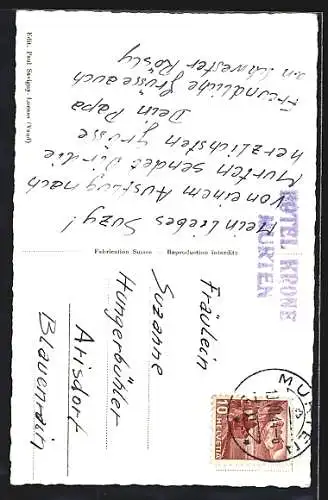 Mein liebes Suzy!
Von einem Ausflug nach
Murten sendet Dir die
herzlichsten Grüsse
Dein Papa
Freundliche Grüsse auch
an Schwester Rösly
HOTEL KRONE
MURTEN
Edit. Paul Savigny Lausanne (Vaud)
Fabrication Suisse - Reproduction interdite
Fräulein
Suzanne
Hungerbühler
Arisdorf
Blauenrain
10 HELVETIA
MURTEN